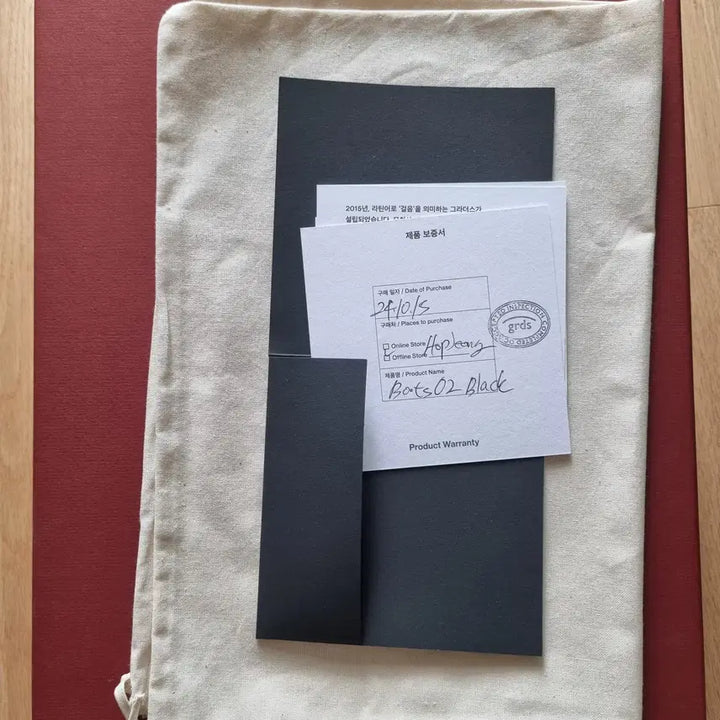 2015년, 라틴어로 '걸음'을 의미하는 그라더스가
설립되었습니다.
제품 보증서
구매 일자 / Date of Purchase
24.10.15
구매처 / Places to purchase
Online Store
Offline Store
제품명 / Product Name
Boots 02 Black
Product Warranty
INSPECTION COMPLETED
grds